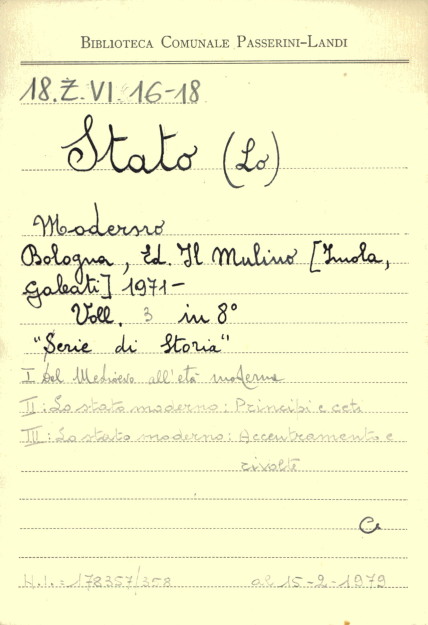 BIBLIOTECA COMUNALE PASSERINI-LANDI
18.Z.VI.16-18
Stato (Lo)
Moderno
Bologna, Ed. Il Mulino [Imola,
Galeati] 1971-
Voll. 3 in 8°
"Serie di Storia"
I Dal Medioevo all'età moderna
II: Lo stato moderno: Principi e ceti
III: Lo stato moderno: Accentramento e
rivolte
N.I.= 178357/358 al 15-2-1979